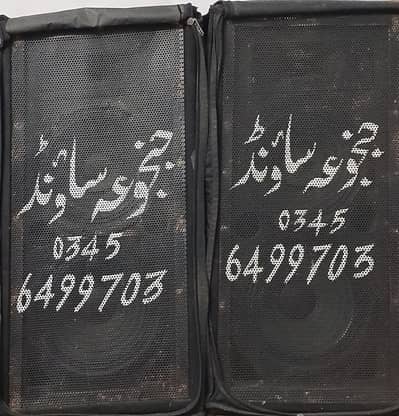 جنجوعہ ساؤنڈ
0345
6499703
جنجوعہ ساؤنڈ
0345
6499703